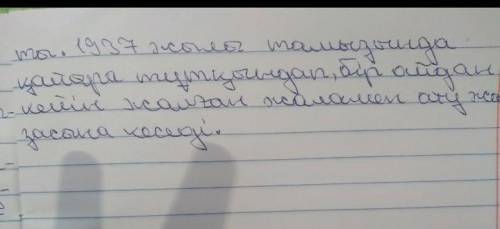 ты. 1937 жылы тамызында
қайора тұтқындап, бір айдан
кейін жалған жаламен ату жа
засына кеседі.